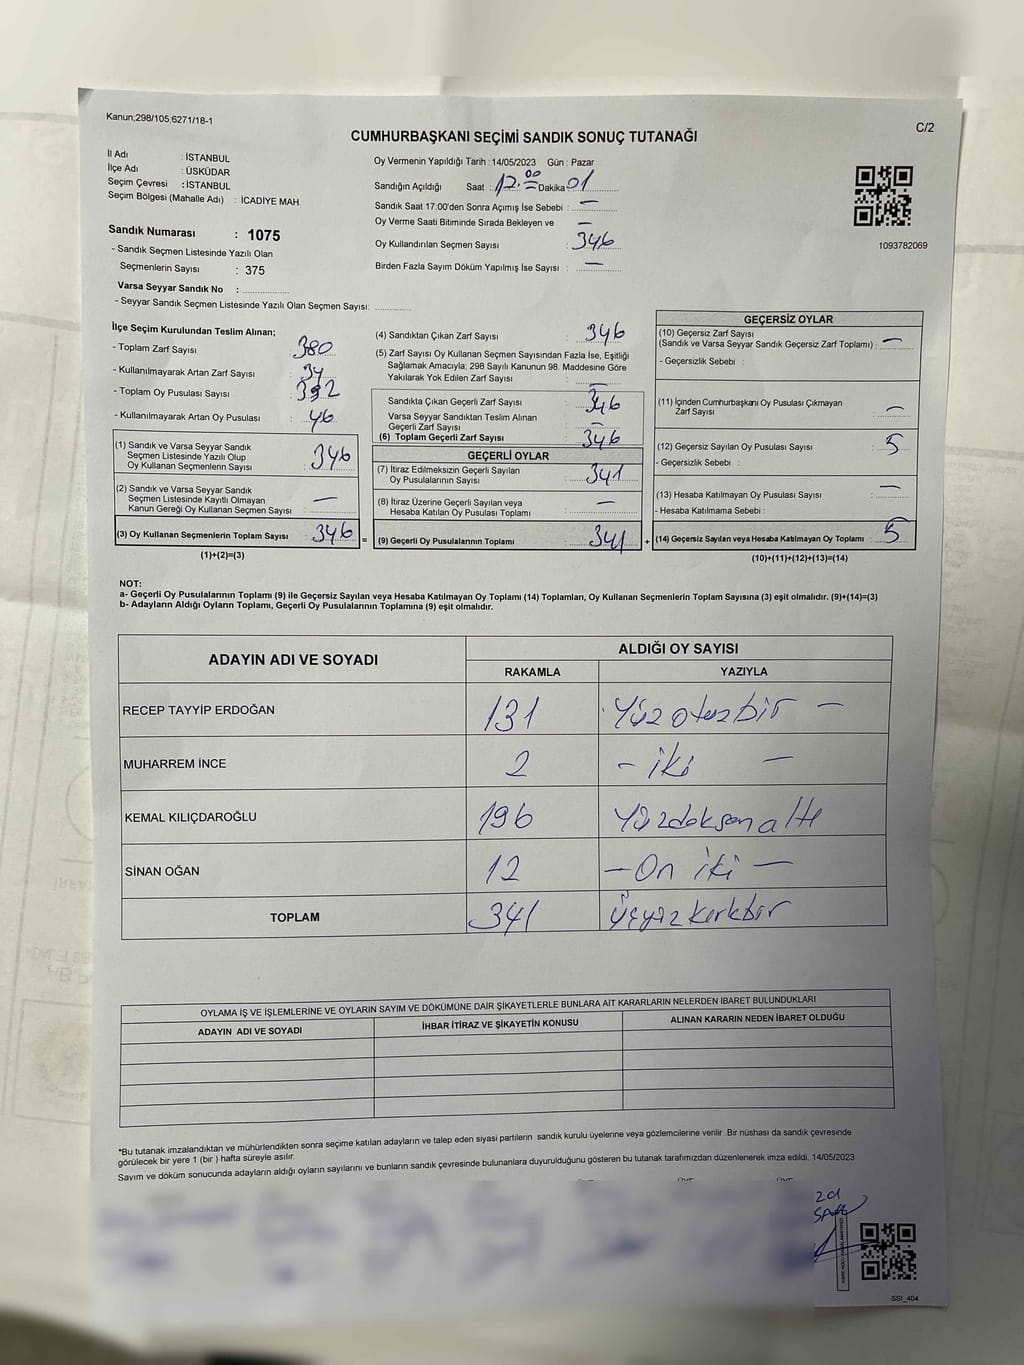 Kanun;298/105;6271/18-1
C/2
CUMHURBAŞKANI SEÇİMİ SANDIK SONUÇ TUTANAĞI
İl Adı : İSTANBUL
İlçe Adı : ÜSKÜDAR
Seçim Çevresi : İSTANBUL
Seçim Bölgesi (Mahalle Adı) : İCADİYE MAH.
Oy Vermenin Yapıldığı Tarih : 14/05/2023 Gün : Pazar
Sandığın Açıldığı Saat : 17.00 Dakika 01
Sandık Saat 17.00'den Sonra Açımış İse Sebebi : —
Oy Verme Saati Bitiminde Sırada Bekleyen ve —
Oy Kullandırılan Seçmen Sayısı : 346
Birden Fazla Sayım Döküm Yapılmış İse Sayısı : —
1093782069
Sandık Numarası : 1075
- Sandık Seçmen Listesinde Yazılı Olan
Seçmenlerin Sayısı : 375
Varsa Seyyar Sandık No :
- Seyyar Sandık Seçmen Listesinde Yazılı Olan Seçmen Sayısı:
İlçe Seçim Kurulundan Teslim Alınan;
- Toplam Zarf Sayısı : 380
- Kullanılmayarak Artan Zarf Sayısı : 34
- Toplam Oy Pusulası Sayısı : 392
- Kullanılmayarak Artan Oy Pusulası : 46
(1) Sandık ve Varsa Seyyar Sandık
Seçmen Listesinde Yazılı Olup
Oy Kullanan Seçmenlerin Sayısı : 346
(2) Sandık ve Varsa Seyyar Sandık
Seçmen Listesinde Kayıtlı Olmayan
Kanun Gereği Oy Kullanan Seçmen Sayısı : —
(3) Oy Kullanan Seçmenlerin Toplam Sayısı : 346 =
(1)+(2)=(3)
(4) Sandıktan Çıkan Zarf Sayısı : 346
(5) Zarf Sayısı Oy Kullanan Seçmen Sayısından Fazla İse, Eşitliği
Sağlamak Amacıyla; 298 Sayılı Kanunun 98. Maddesine Göre
Yakılarak Yok Edilen Zarf Sayısı : —
Sandıkta Çıkan Geçerli Zarf Sayısı : 346
Varsa Seyyar Sandıktan Teslim Alınan
Geçerli Zarf Sayısı : —
(6) Toplam Geçerli Zarf Sayısı : 346
GEÇERLİ OYLAR
(7) İtiraz Edilmeksizin Geçerli Sayılan
Oy Pusulalarının Sayısı : 341
(8) İtiraz Üzerine Geçerli Sayılan veya
Hesaba Katılan Oy Pusulası Toplamı : —
(9) Geçerli Oy Pusulalarının Toplamı : 341 +
GEÇERSİZ OYLAR
(10) Geçersiz Zarf Sayısı
(Sandık ve Varsa Seyyar Sandık Geçersiz Zarf Toplamı) : —
- Geçersizlik Sebebi :
(11) İçinden Cumhurbaşkanı Oy Pusulası Çıkmayan
Zarf Sayısı : —
(12) Geçersiz Sayılan Oy Pusulası Sayısı : 5
- Geçersizlik Sebebi :
(13) Hesaba Katılmayan Oy Pusulası Sayısı : —
- Hesaba Katılmama Sebebi :
(14) Geçersiz Sayılan veya Hesaba Katılmayan Oy Toplamı : 5
(10)+(11)+(12)+(13)=(14)
NOT:
a- Geçerli Oy Pusulalarının Toplamı (9) ile Geçersiz Sayılan veya Hesaba Katılmayan Oy Toplamı (14) Toplamları, Oy Kullanan Seçmenlerin Toplam Sayısına (3) eşit olmalıdır. (9)+(14)=(3)
b- Adayların Aldığı Oyların Toplamı, Geçerli Oy Pusulalarının Toplamına (9) eşit olmalıdır.
ADAYIN ADI VE SOYADI
ALDIĞI OY SAYISI
RAKAMLA YAZIYLA
RECEP TAYYİP ERDOĞAN 131 Yüzotuzbir —
MUHARREM İNCE 2 - iki —
KEMAL KILIÇDAROĞLU 196 Yüzdoksanaltı
SİNAN OĞAN 12 — On iki —
TOPLAM 341 Üçyüzkırkbir
OYLAMA İŞ VE İŞLEMLERİNE VE OYLARIN SAYIM VE DÖKÜMÜNE DAİR ŞİKAYETLERLE BUNLARA AİT KARARLARIN NELERDEN İBARET BULUNDUKLARI
ADAYIN ADI VE SOYADI İHBAR İTİRAZ VE ŞİKAYETİN KONUSU ALINAN KARARIN NEDEN İBARET OLDUĞU
*Bu tutanak imzalandıktan ve mühürlendikten sonra seçime katılan adayların ve talep eden siyasi partilerin sandık kurulu üyelerine veya gözlemcilerine verilir. Bir nüshası da sandık çevresinde
görülecek bir yere 1 (bir ) hafta süreyle asılır.
Sayım ve döküm sonucunda adayların aldığı oyların sayılarını ve bunların sandık çevresinde bulunanlara duyurulduğunu gösteren bu tutanak tarafımızdan düzenlenerek imza edildi. 14/05/2023
SSI_404